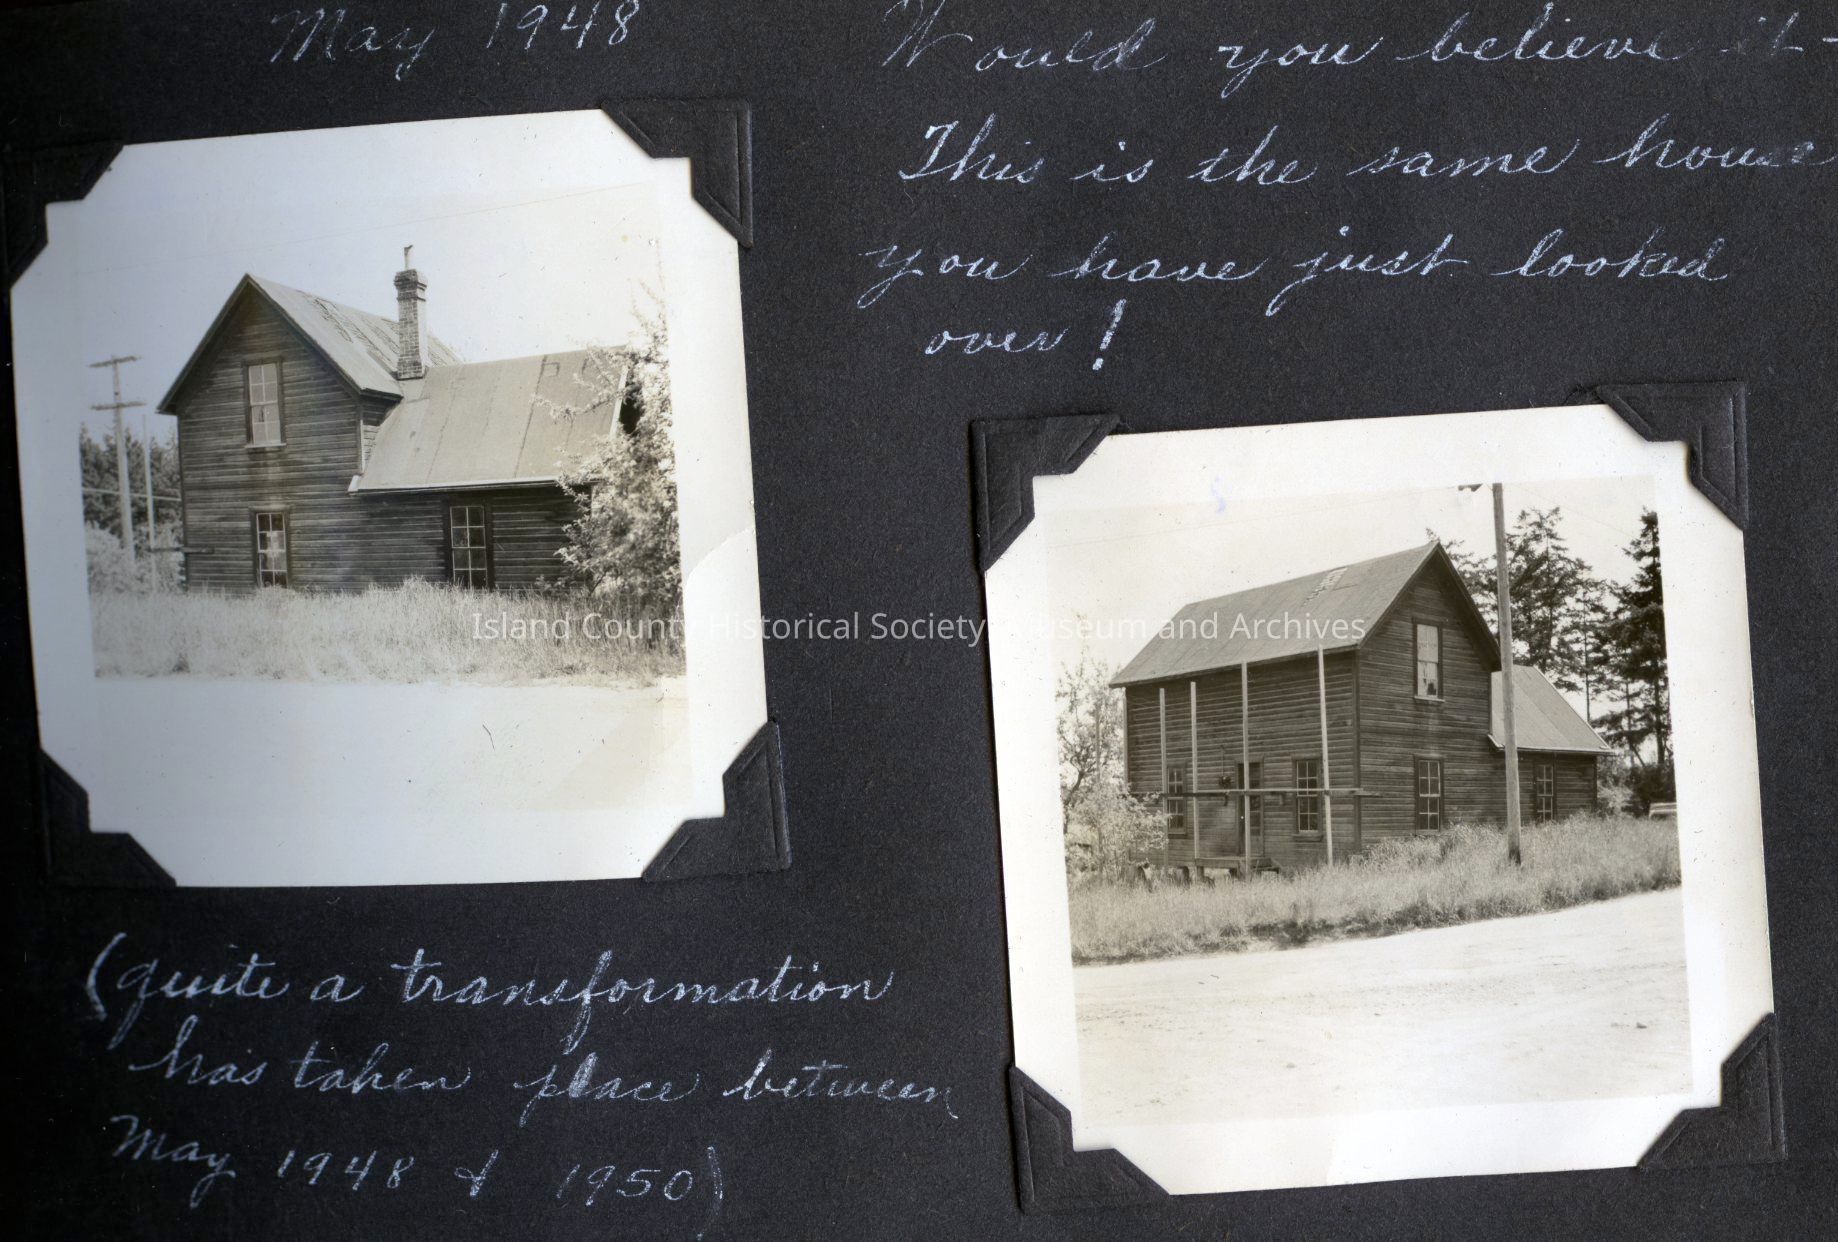 May 1948
Would you believe it -
This is the same house
you have just looked
over!
Island County Historical Society Museum and Archives
(quite a transformation
has taken place between
May 1948 & 1950)